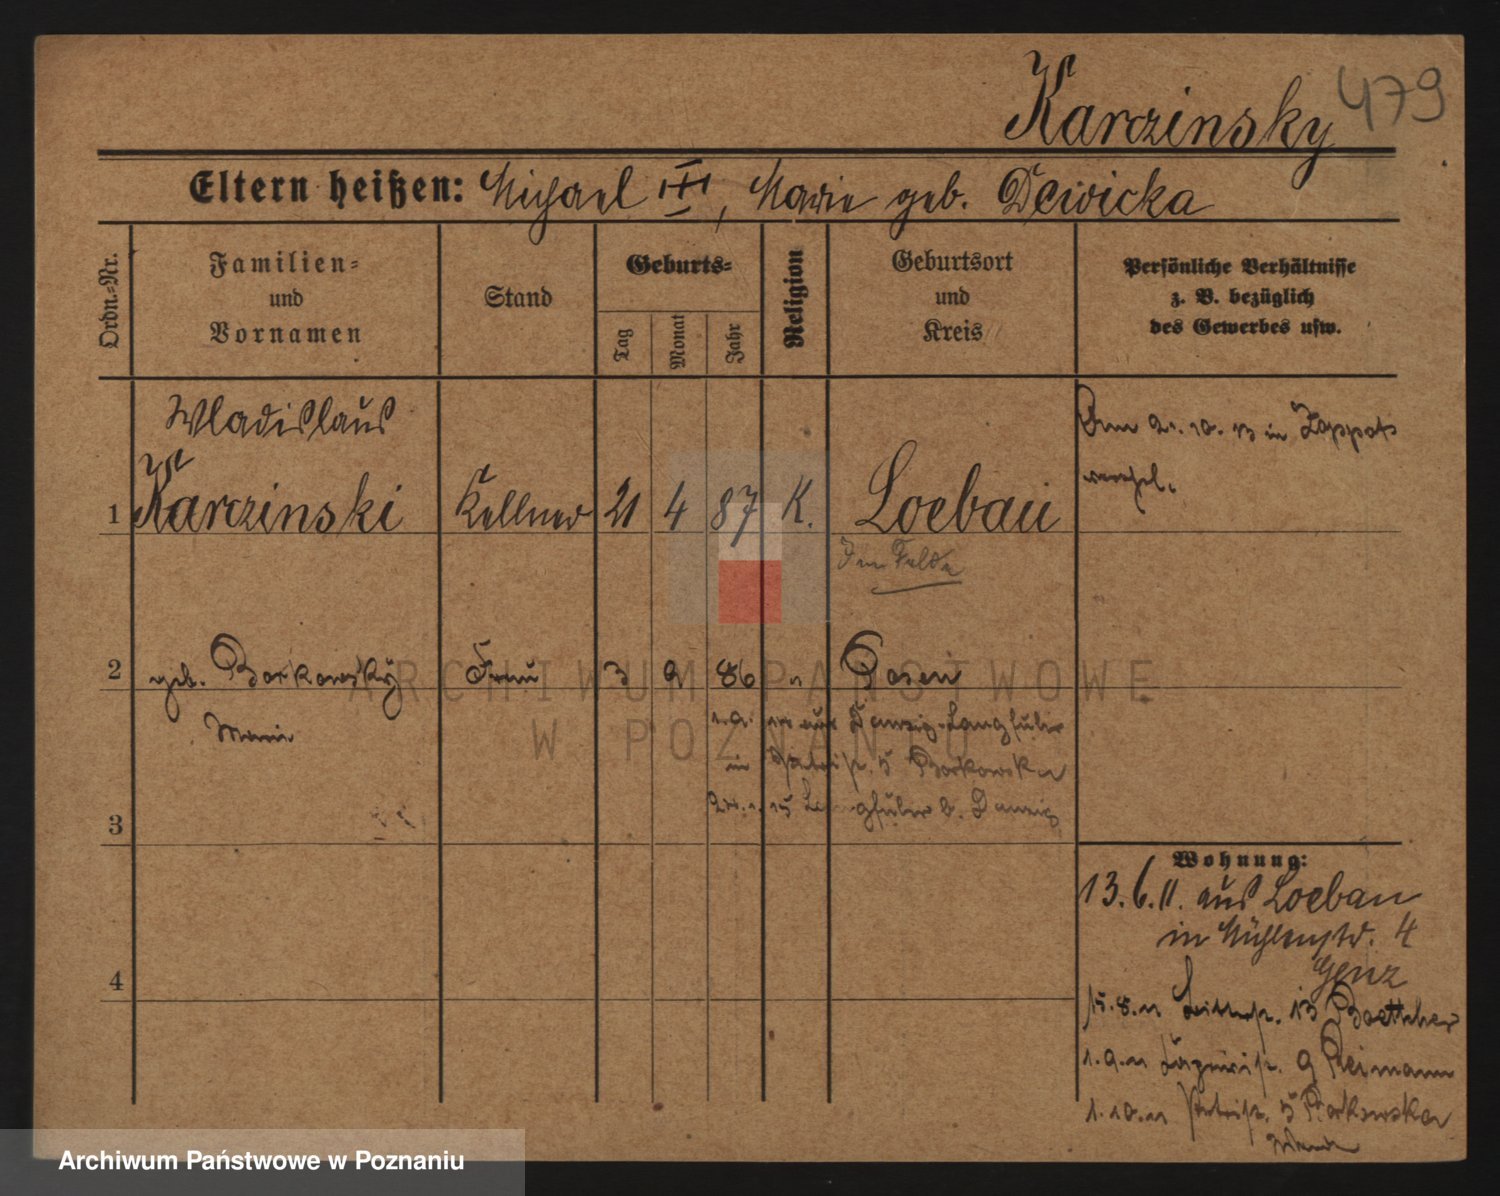 Karczinsky 479
Eltern heißen: Michael III, Marie geb. Dewicka
Ordn.-Nr.
Familien-
und
Vornamen
Stand
Geburts-
Tag
Monat
Jahr
Religion
Geburtsort
und
Kreis
Persönliche Verhältnisse
z. B. bezüglich
des Gewerbes usw.
Wladislaus
1 Karczinski Kellner 21 4 87 K. Loebau
Im Felde
21. 10. 13 in Zoppot
2 geb. Borkowsky Frau 3 9 86 " Posen
Marie
aus Danzig-Langfuhr
in 5 Borkowska
15 Langfuhr b. Danzig
3
4
Wohnung:
13. 6. 11. aus Loebau
in Mühlenstr. 4
Genz
15. 8. 11 13 Boettcher
1. 9. 11 9 Reimann
1. 10. 11 5 Borkowska
ARCHIWUM PAŃSTWOWE
W POZNANIU
Archiwum Państwowe w Poznaniu